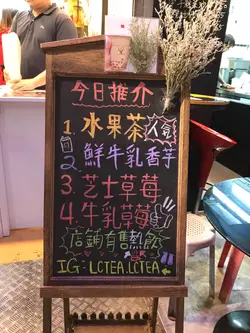 今日推介
1. 水果茶 人氣
2. 鮮牛乳香芋
3. 芝士草莓
4. 牛乳草莓
店鋪有售熱飲
IG - LCTEA.LCTEA